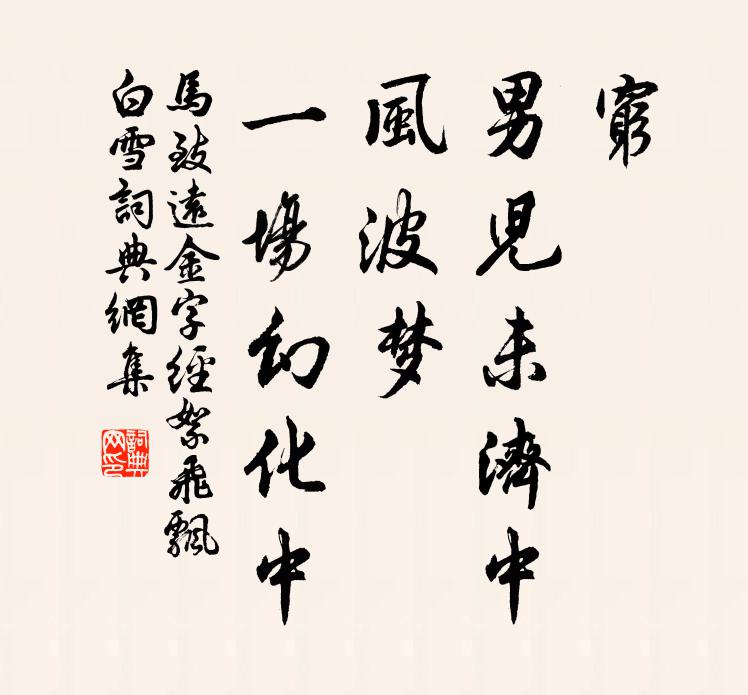 窮
男児未濟中
風波梦
一場幻化中
馬致遠金字經絮飛飄
白雪詞典網集
詞典网印